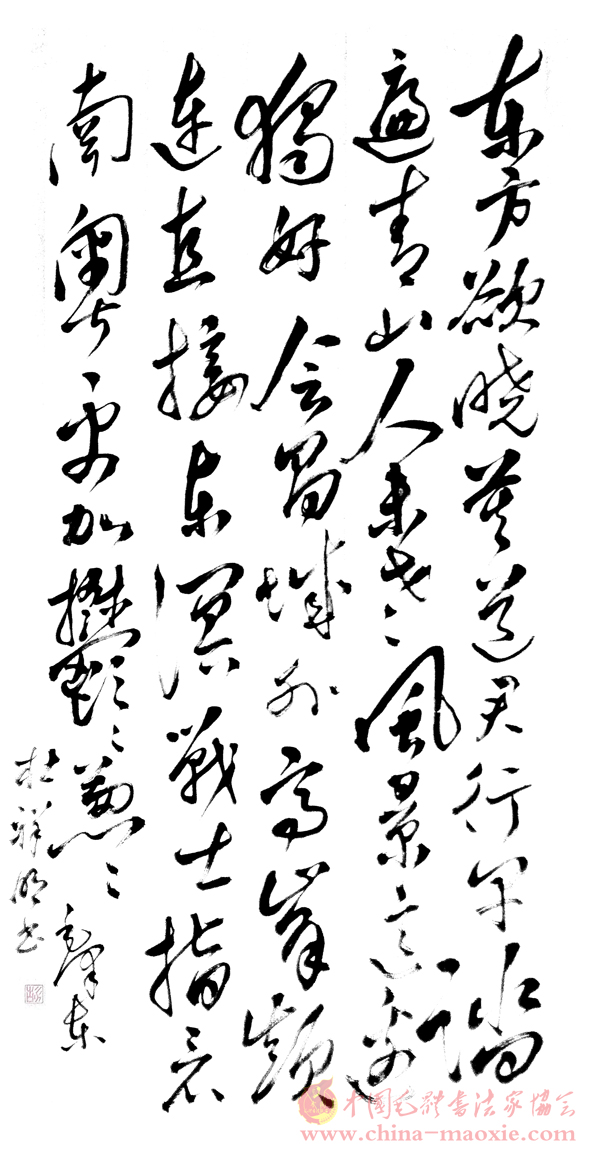 东方欲晓莫道君行早踏
遍青山人未老風景这边
獨好会昌城外高峯颠
连直接东溟戰士指看
南粤更加鬱〻葱〻泽东
杜祥明书
中國毛體书法家協会
www.china-maoxie.com